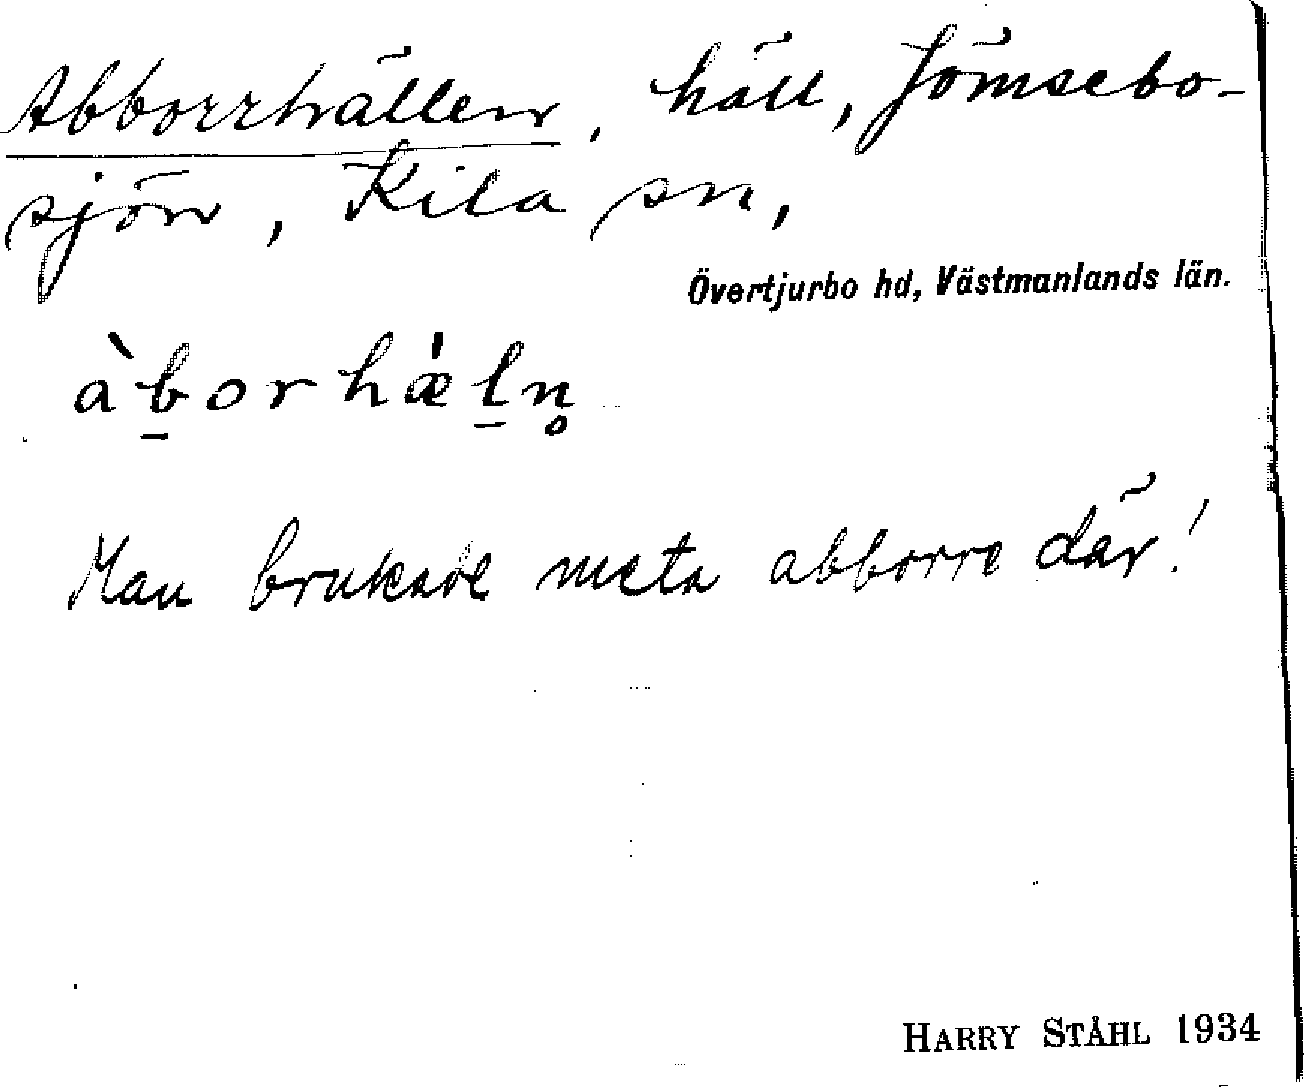 Abborrhällen, häll, Jömsebo-
sjön, Kila sn,
Övertjurbo hd, Västmanlands län.
àb̠orhæ̍l̠n̥
Man brukade meta abborre där!
HARRY STÅHL 1934